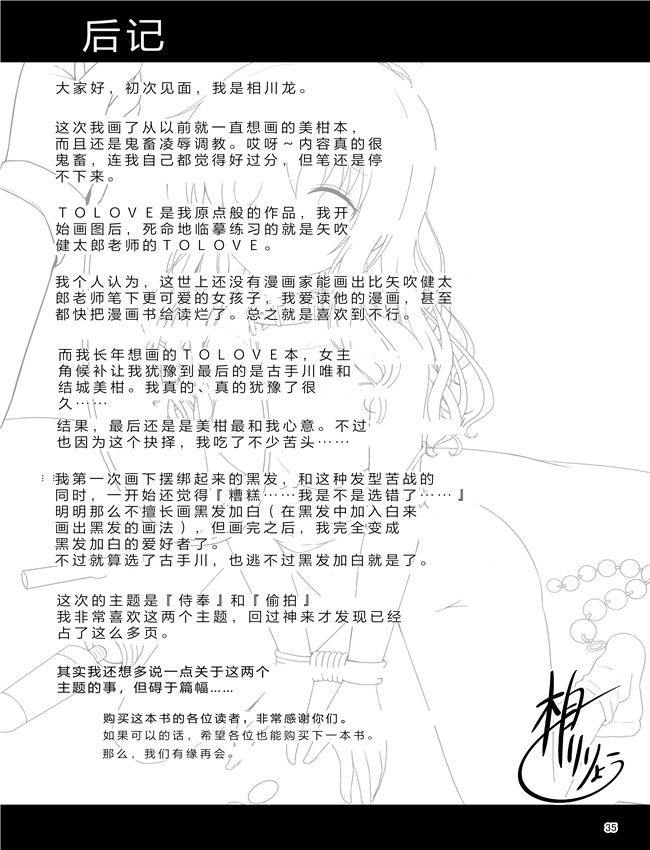 后记
大家好，初次见面，我是相川龙。
这次我画了从以前就一直想画的美柑本，
而且还是鬼畜凌辱调教。哎呀～内容真的很
鬼畜，连我自己都觉得好过分，但笔还是停
不下来。
ＴＯＬＯＶＥ是我原点般的作品，我开
始画图后，死命地临摹练习的就是矢吹
健太郎老师的ＴＯＬＯＶＥ。
我个人认为，这世上还没有漫画家能画出比矢吹健太
郎老师笔下更可爱的女孩子，我爱读他的漫画，甚至
都快把漫画书给读烂了。总之就是喜欢到不行。
而我长年想画的ＴＯＬＯＶＥ本，女主
角候补让我犹豫到最后的是古手川唯和
结城美柑。我真的、真的犹豫了很
久……
结果，最后还是是美柑最和我心意。不过
也因为这个抉择，我吃了不少苦头……
我第一次画下摆绑起来的黑发，和这种发型苦战的
同时，一开始还觉得『糟糕……我是不是选错了……』
明明那么不擅长画黑发加白（在黑发中加入白来
画出黑发的画法），但画完之后，我完全变成
黑发加白的爱好者了。
不过就算选了古手川，也逃不过黑发加白就是了。
这次的主题是『侍奉』和『偷拍』
我非常喜欢这两个主题，回过神来才发现已经
占了这么多页。
其实我还想多说一点关于这两个
主题的事，但碍于篇幅……
购买这本书的各位读者，非常感谢你们。
如果可以的话，希望各位也能购买下一本书。
那么，我们有缘再会。
相川りょう
35